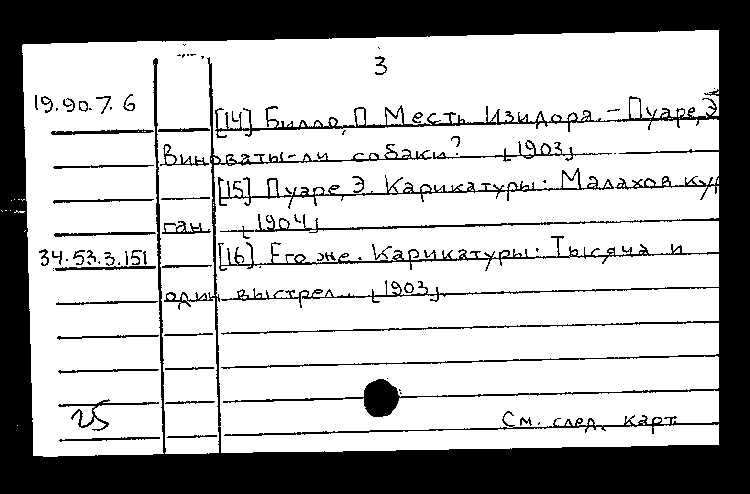 3
19.90.7.6
[14] Билло, П. Месть Изидора. – Пуаре, Э.
Виноваты-ли собаки? [1903]
[15] Пуаре, Э. Карикатуры: Малахов кур
ган [1904]
34.53.3.151 [16] Его же. Карикатуры: Тысяча и
один выстрел. [1903]
25
См. след. карт.